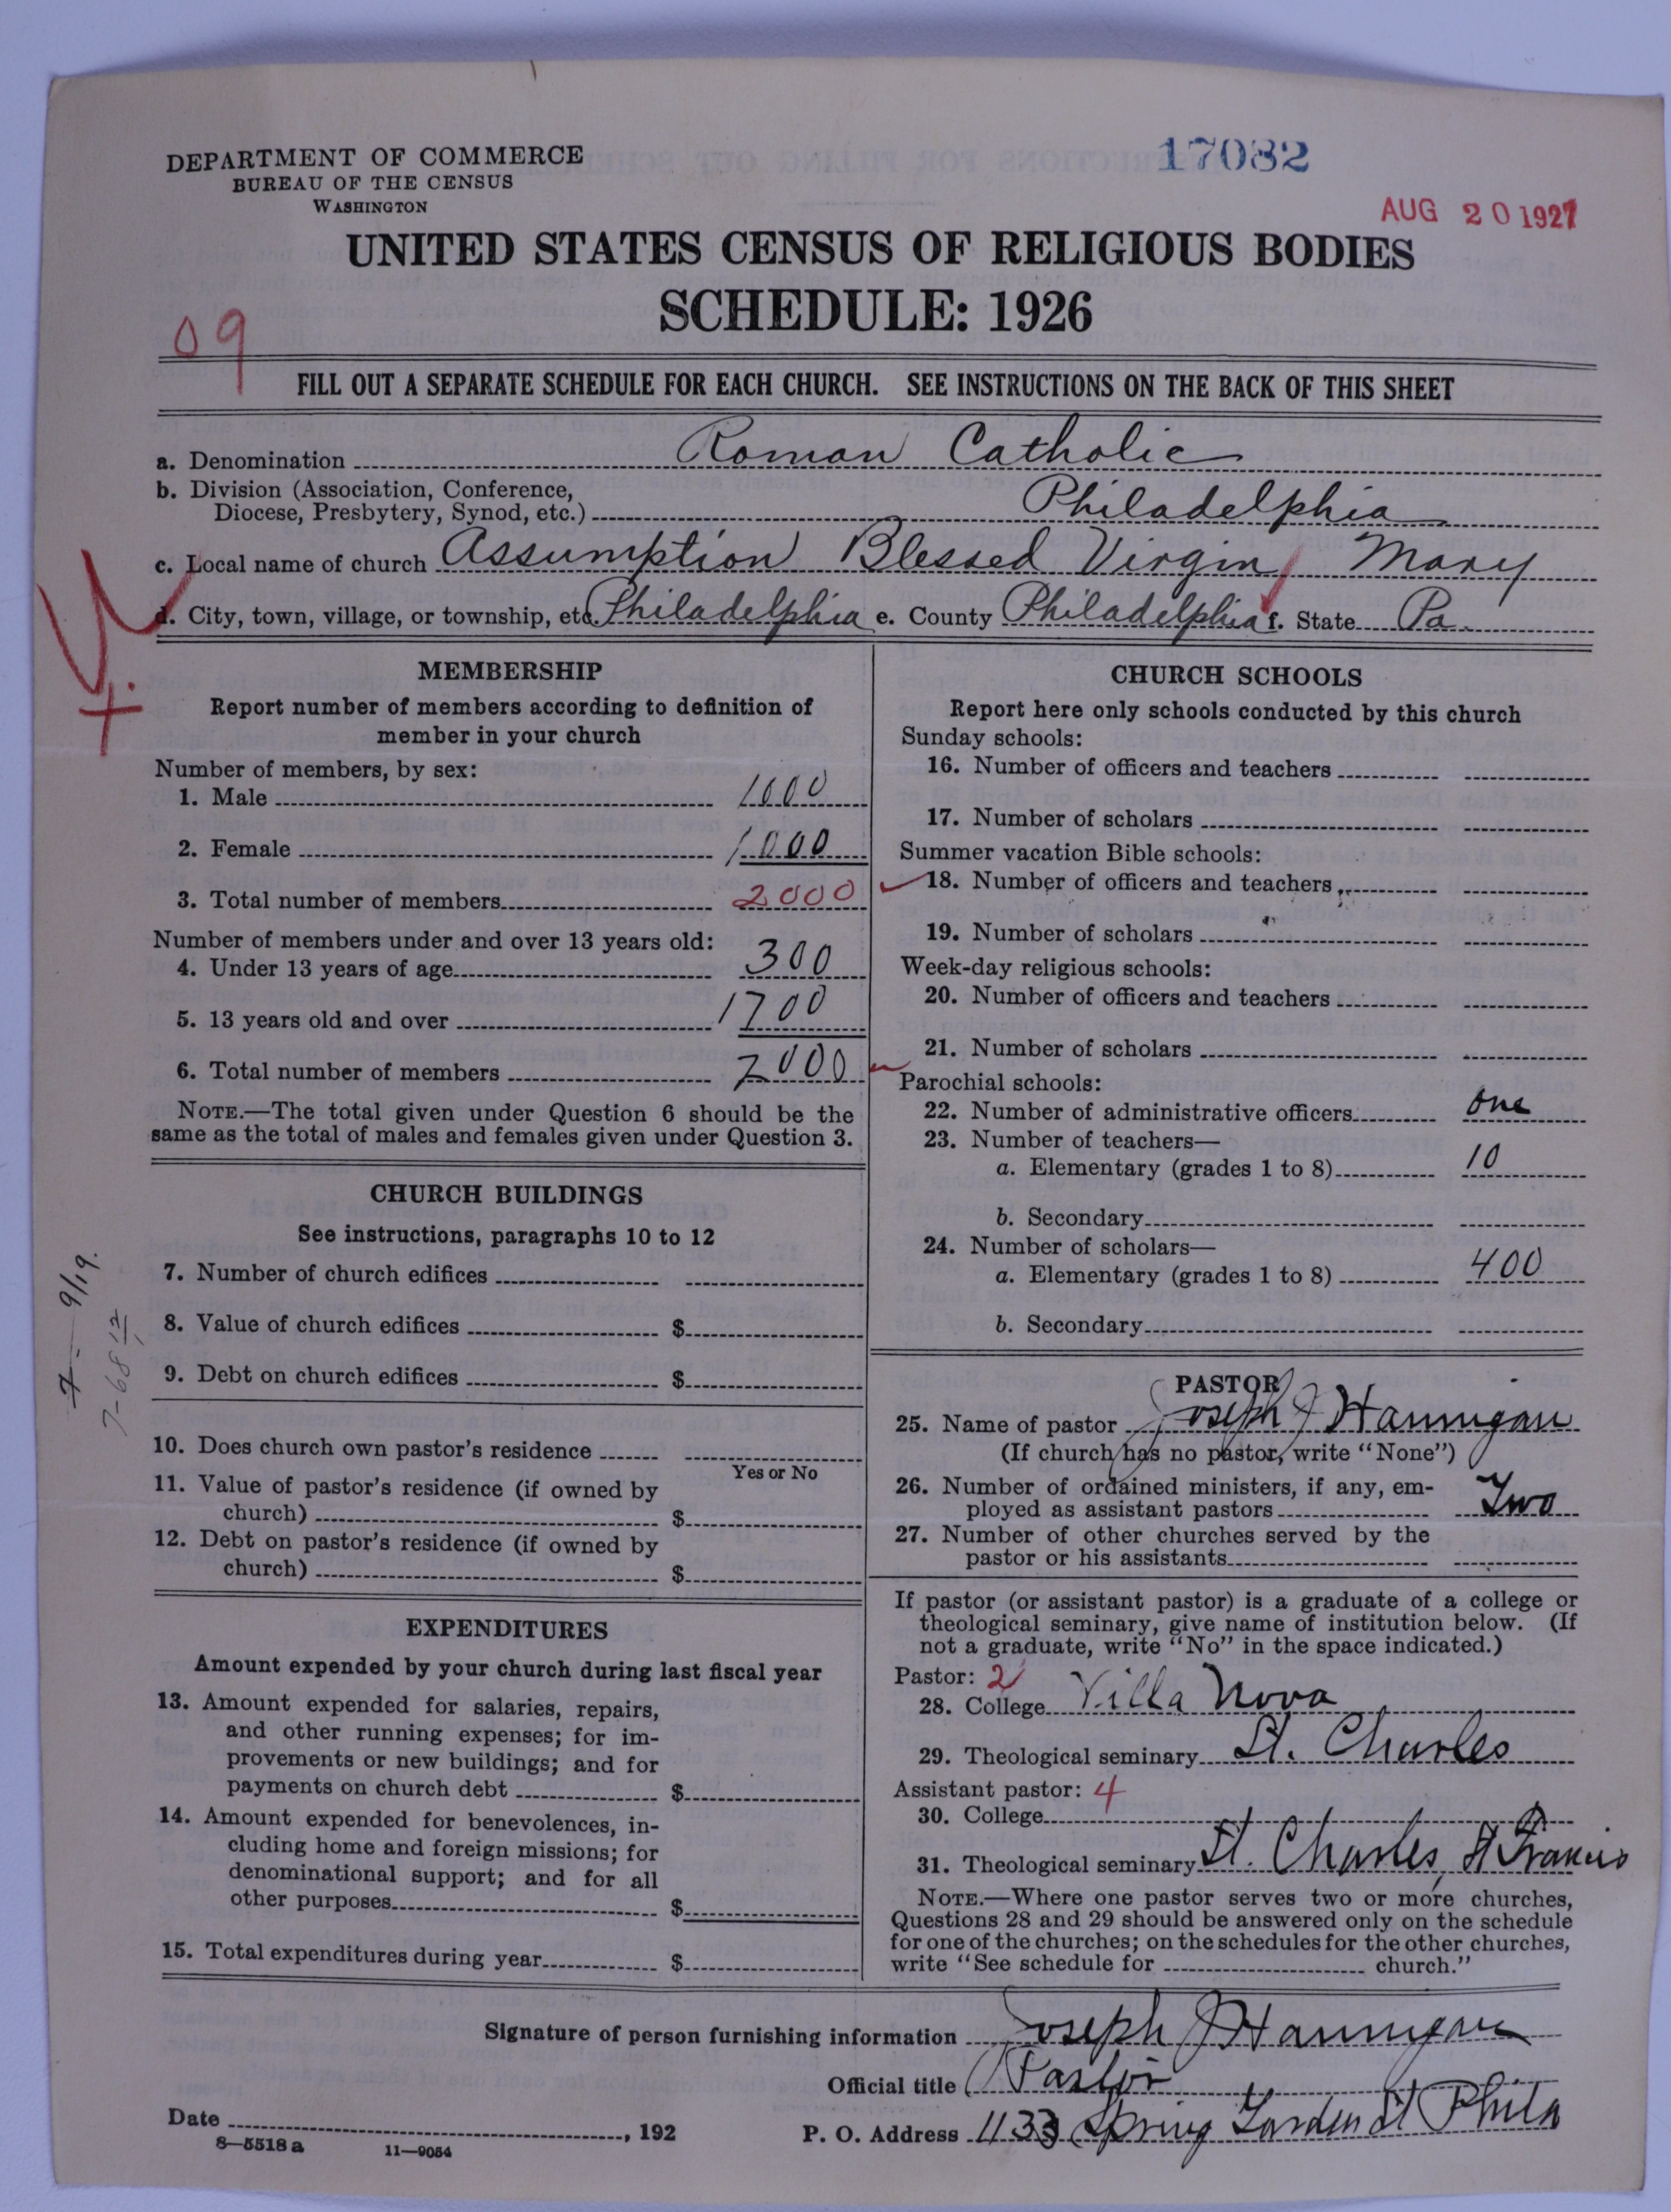 DEPARTMENT OF COMMERCE
BUREAU OF THE CENSUS
WASHINGTON
17082
AUG 20 1927
UNITED STATES CENSUS OF RELIGIOUS BODIES
SCHEDULE: 1926
09
FILL OUT A SEPARATE SCHEDULE FOR EACH CHURCH. SEE INSTRUCTIONS ON THE BACK OF THIS SHEET
a. Denomination Roman Catholic
b. Division (Association, Conference,
Diocese, Presbytery, Synod, etc.) Philadelphia
c. Local name of church Assumption Blessed Virgin Mary
d. City, town, village, or township, etc. Philadelphia e. County Philadelphia f. State Pa.
MEMBERSHIP
Report number of members according to definition of
member in your church
Number of members, by sex:
1. Male 1000
2. Female 1000
3. Total number of members 2000
Number of members under and over 13 years old:
4. Under 13 years of age 300
5. 13 years old and over 1700
6. Total number of members 2000
NOTE.—The total given under Question 6 should be the
same as the total of males and females given under Question 3.
CHURCH BUILDINGS
See instructions, paragraphs 10 to 12
7. Number of church edifices
8. Value of church edifices $
9. Debt on church edifices $
10. Does church own pastor's residence
Yes or No
11. Value of pastor's residence (if owned by
church) $
12. Debt on pastor's residence (if owned by
church) $
EXPENDITURES
Amount expended by your church during last fiscal year
13. Amount expended for salaries, repairs,
and other running expenses; for im-
provements or new buildings; and for
payments on church debt $
14. Amount expended for benevolences, in-
cluding home and foreign missions; for
denominational support; and for all
other purposes $
15. Total expenditures during year $
7-9/19.
CHURCH SCHOOLS
Report here only schools conducted by this church
Sunday schools:
16. Number of officers and teachers
17. Number of scholars
Summer vacation Bible schools:
18. Number of officers and teachers
19. Number of scholars
Week-day religious schools:
20. Number of officers and teachers
21. Number of scholars
Parochial schools:
22. Number of administrative officers one
23. Number of teachers—
a. Elementary (grades 1 to 8) 10
b. Secondary
24. Number of scholars—
a. Elementary (grades 1 to 8) 400
b. Secondary
PASTOR
25. Name of pastor Joseph J Hannigan
(If church has no pastor, write "None")
26. Number of ordained ministers, if any, em-
ployed as assistant pastors Two
27. Number of other churches served by the
pastor or his assistants
If pastor (or assistant pastor) is a graduate of a college or
theological seminary, give name of institution below. (If
not a graduate, write "No" in the space indicated.)
Pastor: 2
28. College Villa Nova
29. Theological seminary St. Charles
Assistant pastor: 4
30. College
31. Theological seminary St. Charles, St Francis
NOTE.—Where one pastor serves two or more churches,
Questions 28 and 29 should be answered only on the schedule
for one of the churches; on the schedules for the other churches,
write "See schedule for church."
Signature of person furnishing information Joseph J Hannigan
Official title Pastor
Date , 192
P. O. Address 1133 Spring Garden St Phila
8-5518 a 11-9054